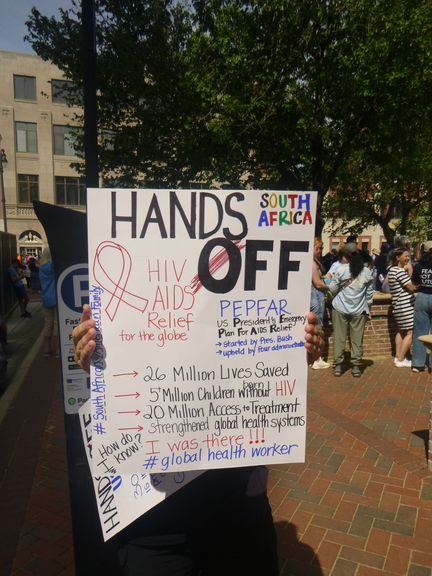 HANDS
OFF
SOUTH
AFRICA
HIV
AIDS
Relief
for the globe
PEPFAR
US President's Emergency
Plan For AIDS Relief
→ started by Pres. Bush
→ upheld by four
→ 26 Million Lives Saved
→ 5 Million Children born Without HIV
→ 20 Million Access to Treatment
→ strengthened global health systems
How do U
know?
I was there !!!
# global health worker
# South African Family
HAND
P
FEAR
NOT